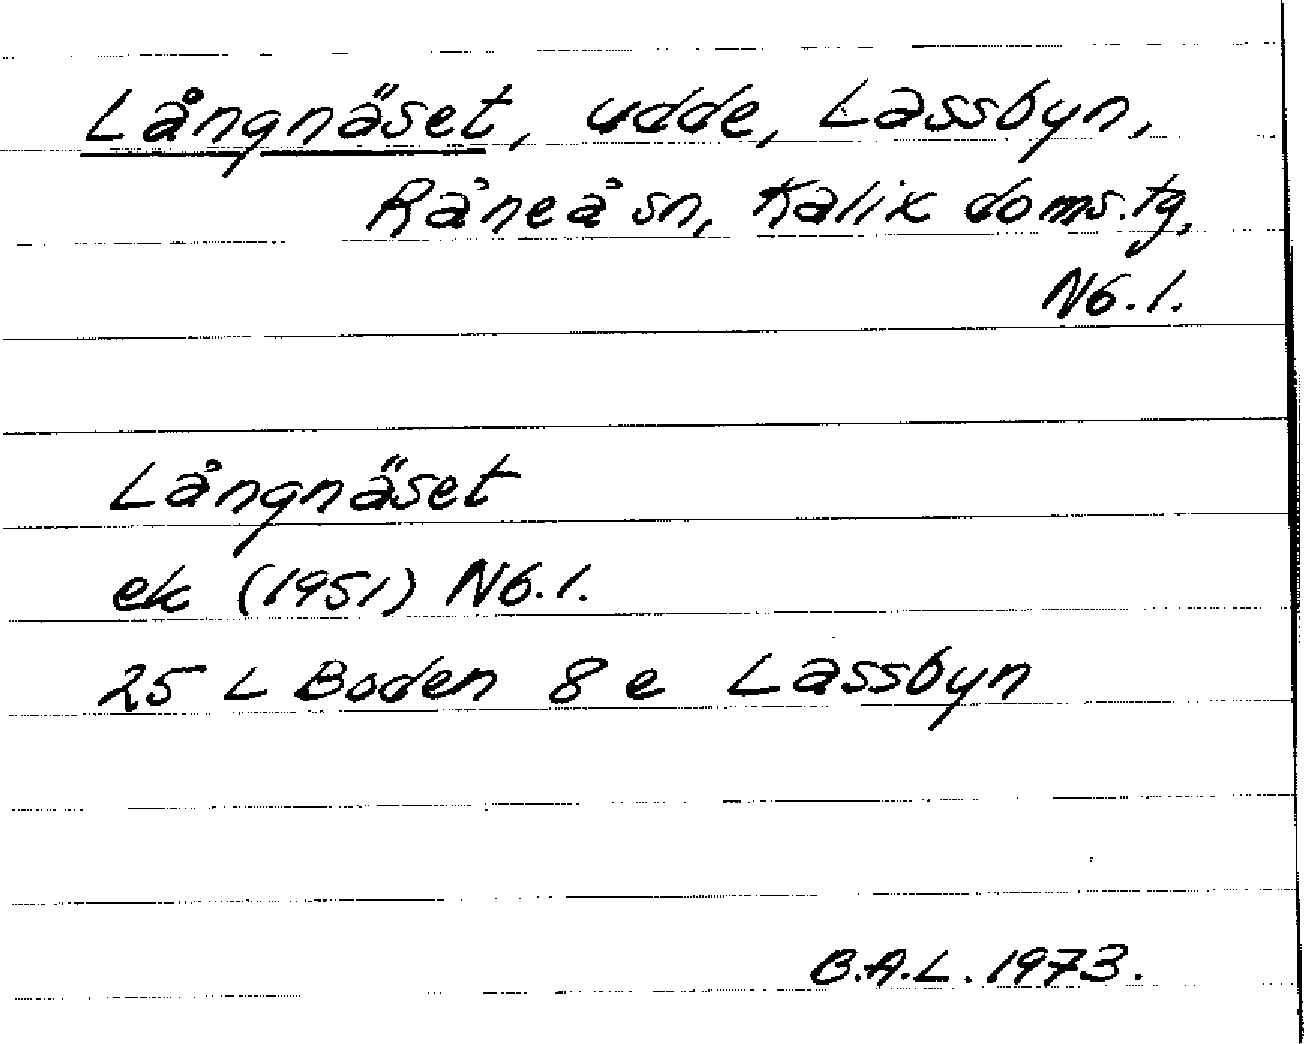 Långnäset, udde, Lassbyn,
Råneå sn, Kalix doms.tg,
Nb.l.
Långnäset
ek (1951) Nb.l.
25 L Boden 8 e Lassbyn
B.A.L. 1973.